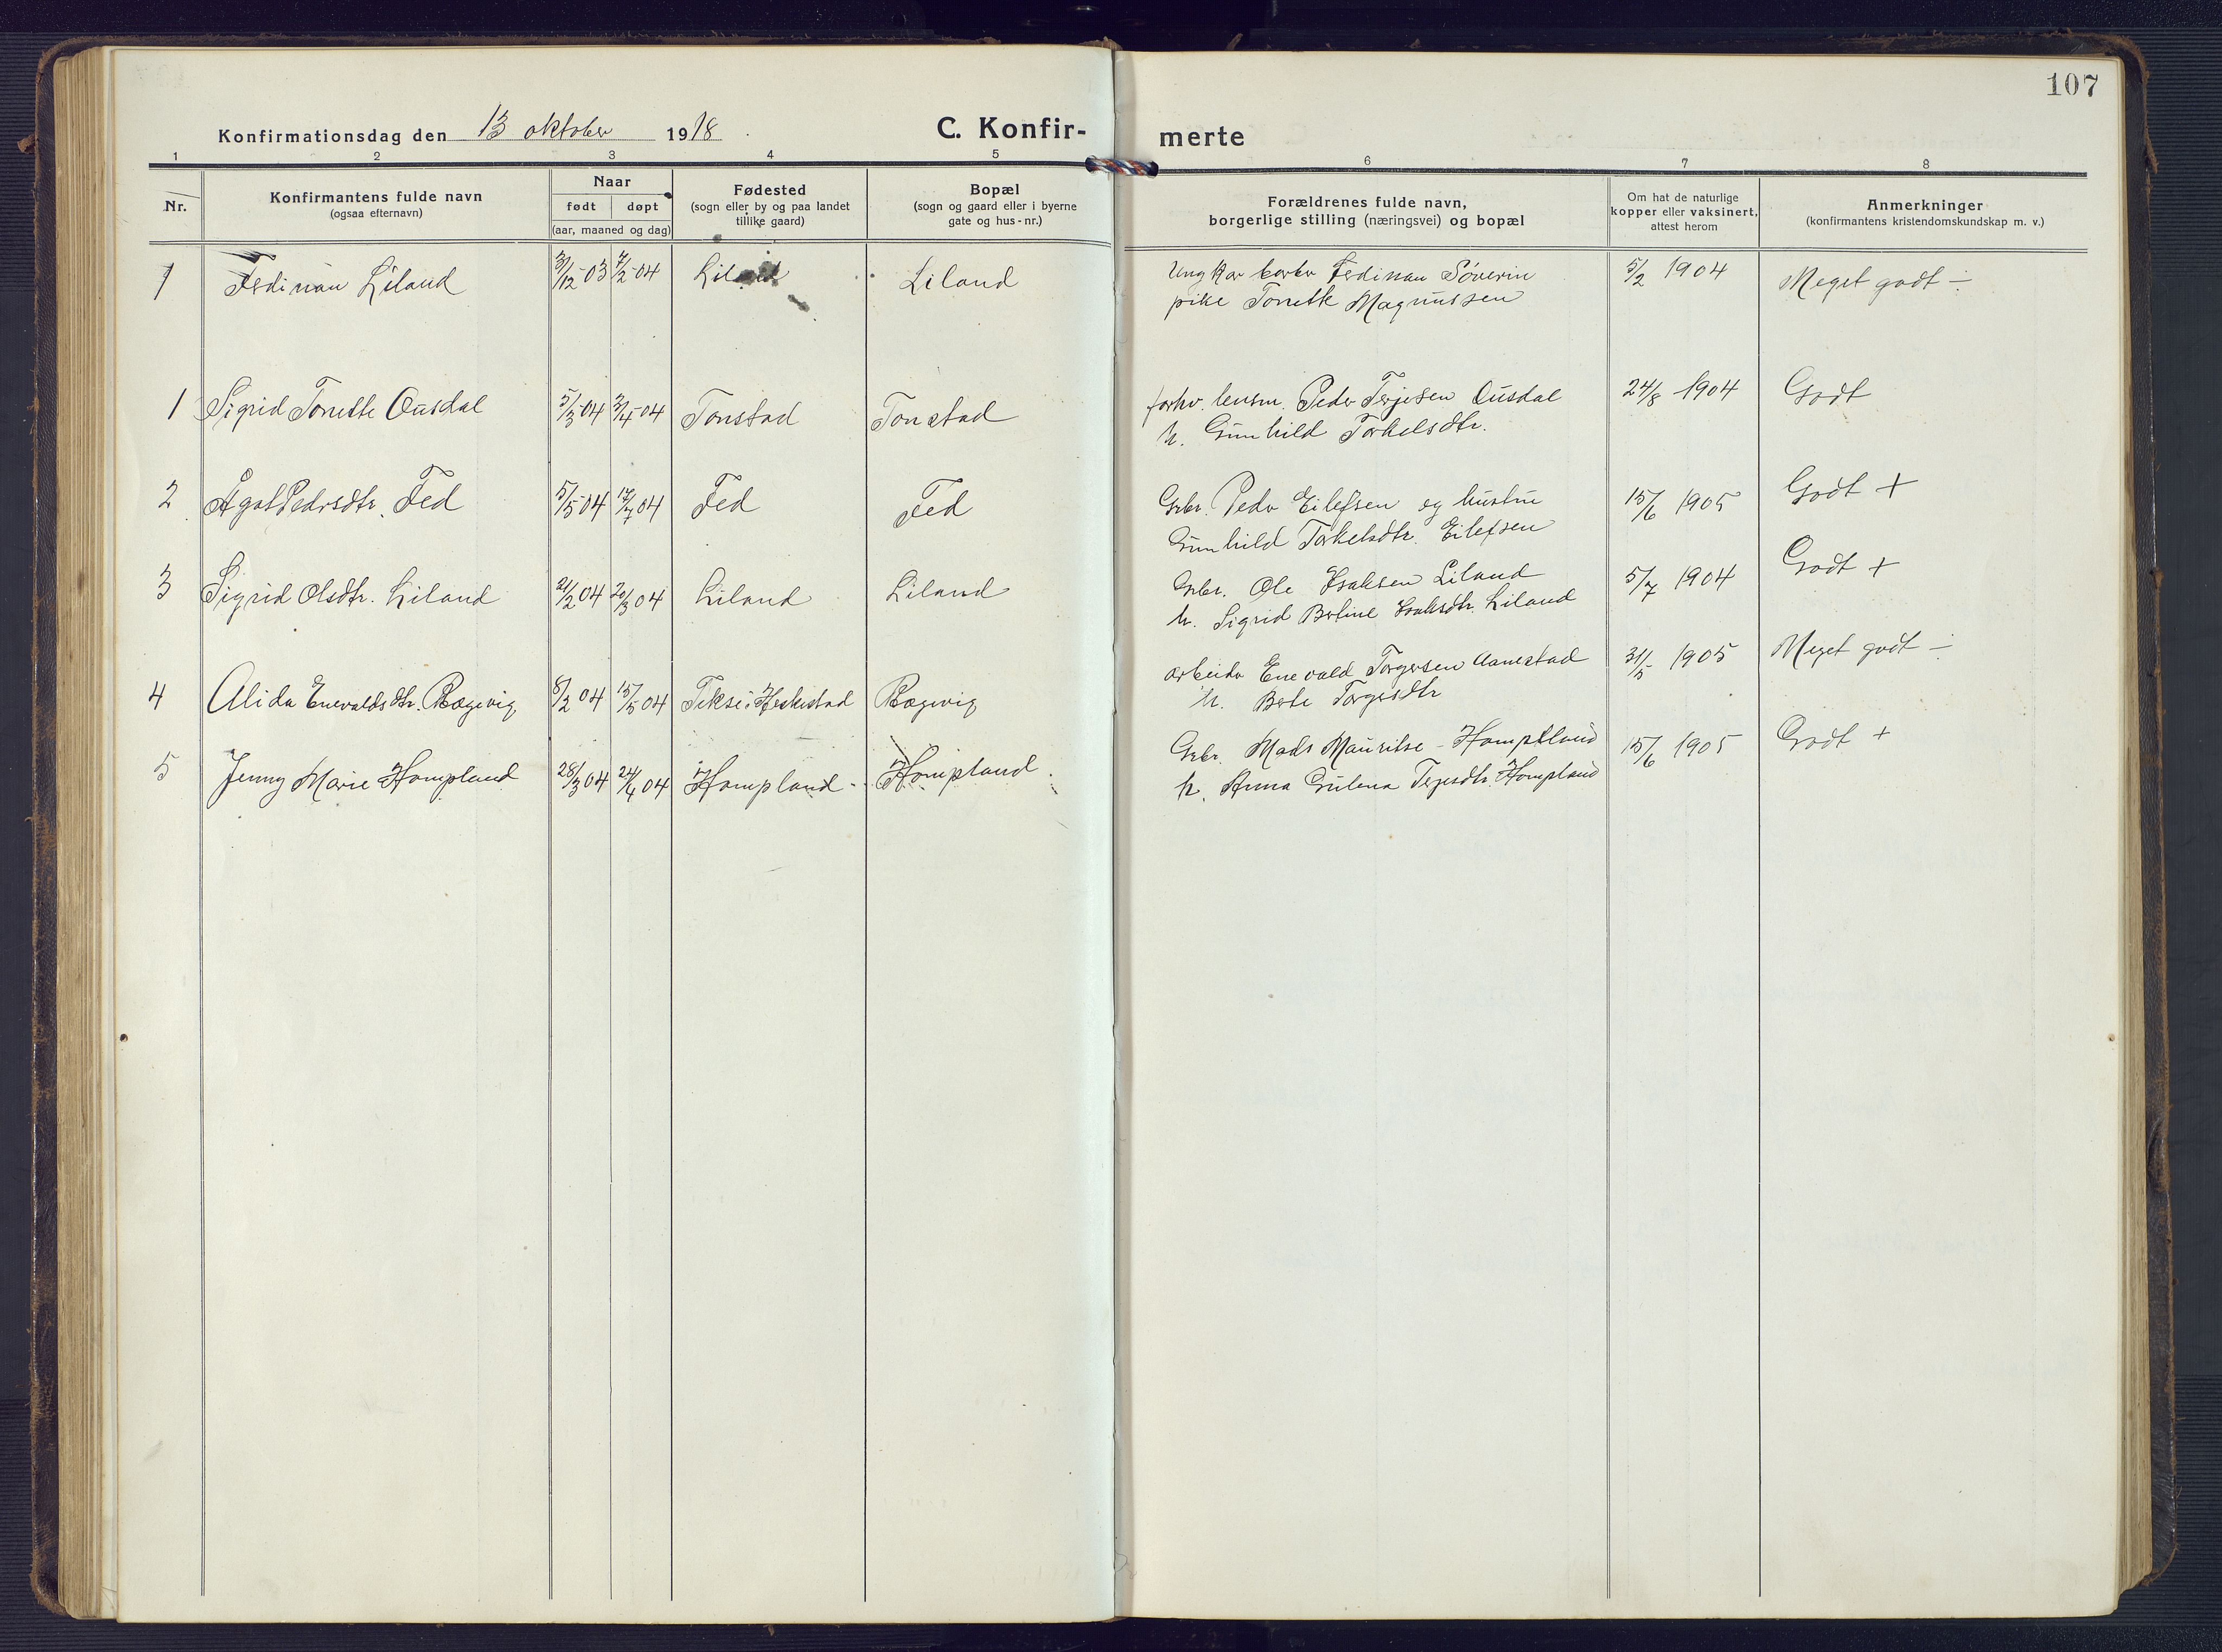 107
Konfirmationsdag den 13 oktober 1918.
C. Konfir-
merte
1 2 3 4 5 6 7 8
Nr.
Konfirmantens fulde navn
(ogsaa efternavn)
Naar
født døpt
(aar, maaned og dag)
Fødested
(sogn eller by og paa landet
tillike gaard)
Bopæl
(sogn og gaard eller i byerne
gate og hus-nr.)
Forældrenes fulde navn,
borgerlige stilling (næringsvei) og bopæl
Om hat de naturlige
kopper eller vaksinert,
attest herom
Anmerkninger
(konfirmantens kristendomskundskap m. v.)
1 Ferdinan Liland 31/12 03 7/2 04 Liland Liland Ungkar Ferdinan Søverin 5/2 1904 Meget godt ÷
pike Tonette Magnussen
1 Sigrid Tonette Ousdal 5/3 04 3/4 04 Tonstad Tonstad forhv. lensm. Peder Terjesen Ousdal 24/8 1904 Godt
h. Gunhild Torkelsdtr.
2 Ågot Pedrsdtr. Fed 5/5 04 17/7 04 Fed Fed Grbr. Peder Eilefsen og hustru 15/6 1905 Godt +
Gunhild Torkelsdtr. Eilefsen
3 Sigrid Olsdtr. Liland 21/2 04 20/3 04 Liland Liland Grbr. Ole Isaksen Liland 5/7 1904 Godt +
h. Sigrid Bertine Isaksdtr. Liland
4 Alida Enevaldsdtr. Rægevig 8/2 04 15/5 04 Tekse i Heskestad Rægevig arbeider Enevald Torgersen Aamestad 31/5 1905 Meget godt ÷
h. Berte Torgersdtr
5 Jenny Marie Hompland 28/3 04 24/4 04 Hompland Hompland. Grbr. Mads Mauritse - Hompland 15/6 1905 Godt +
h. Anna Gulena Terjesdtr. Hompland